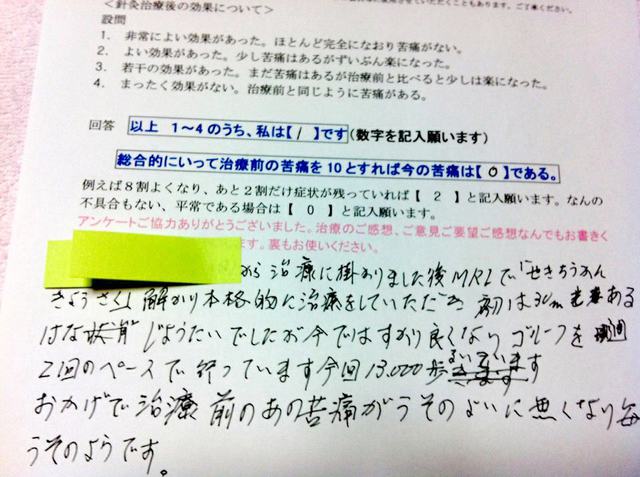 ＜針灸治療後の効果について＞
設問
1. 非常によい効果があった。ほとんど完全になおり苦痛がない。
2. よい効果があった。少し苦痛はあるがずいぶん楽になった。
3. 若干の効果があった。まだ苦痛はあるが治療前と比べると少しは楽になった。
4. まったく効果がない。治療前と同じように苦痛がある。
回答 以上 1～4のうち、私は【 1 】です(数字を記入願います)
総合的にいって治療前の苦痛を10とすれば今の苦痛は【 0 】である。
例えば8割よくなり、あと2割だけ症状が残っていれば【 2 】と記入願います。なんの
不具合もない、平常である場合は【 0 】と記入願います。
アンケートご協力ありがとうございました。治療のご感想、ご意見ご要望ご感想なんでもお書きく
ます。裏もお使いください。
から治療に掛かりました後MRIで「せきちゅうかん
きょうさく」解かり本格的に治療をしていただき 初は30m
はな じょうたいでしたが今ではすかり良くなりゴルーフを 週
2回のペースで行っています今回13,000歩
おかげで治療前のあの苦痛がうそのよいに無くなり毎
うそのようです。